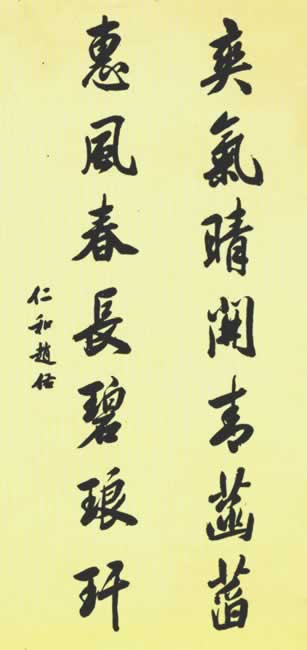 爽氣晴開青菡萏
惠風春長碧琅玕
仁和趙佑